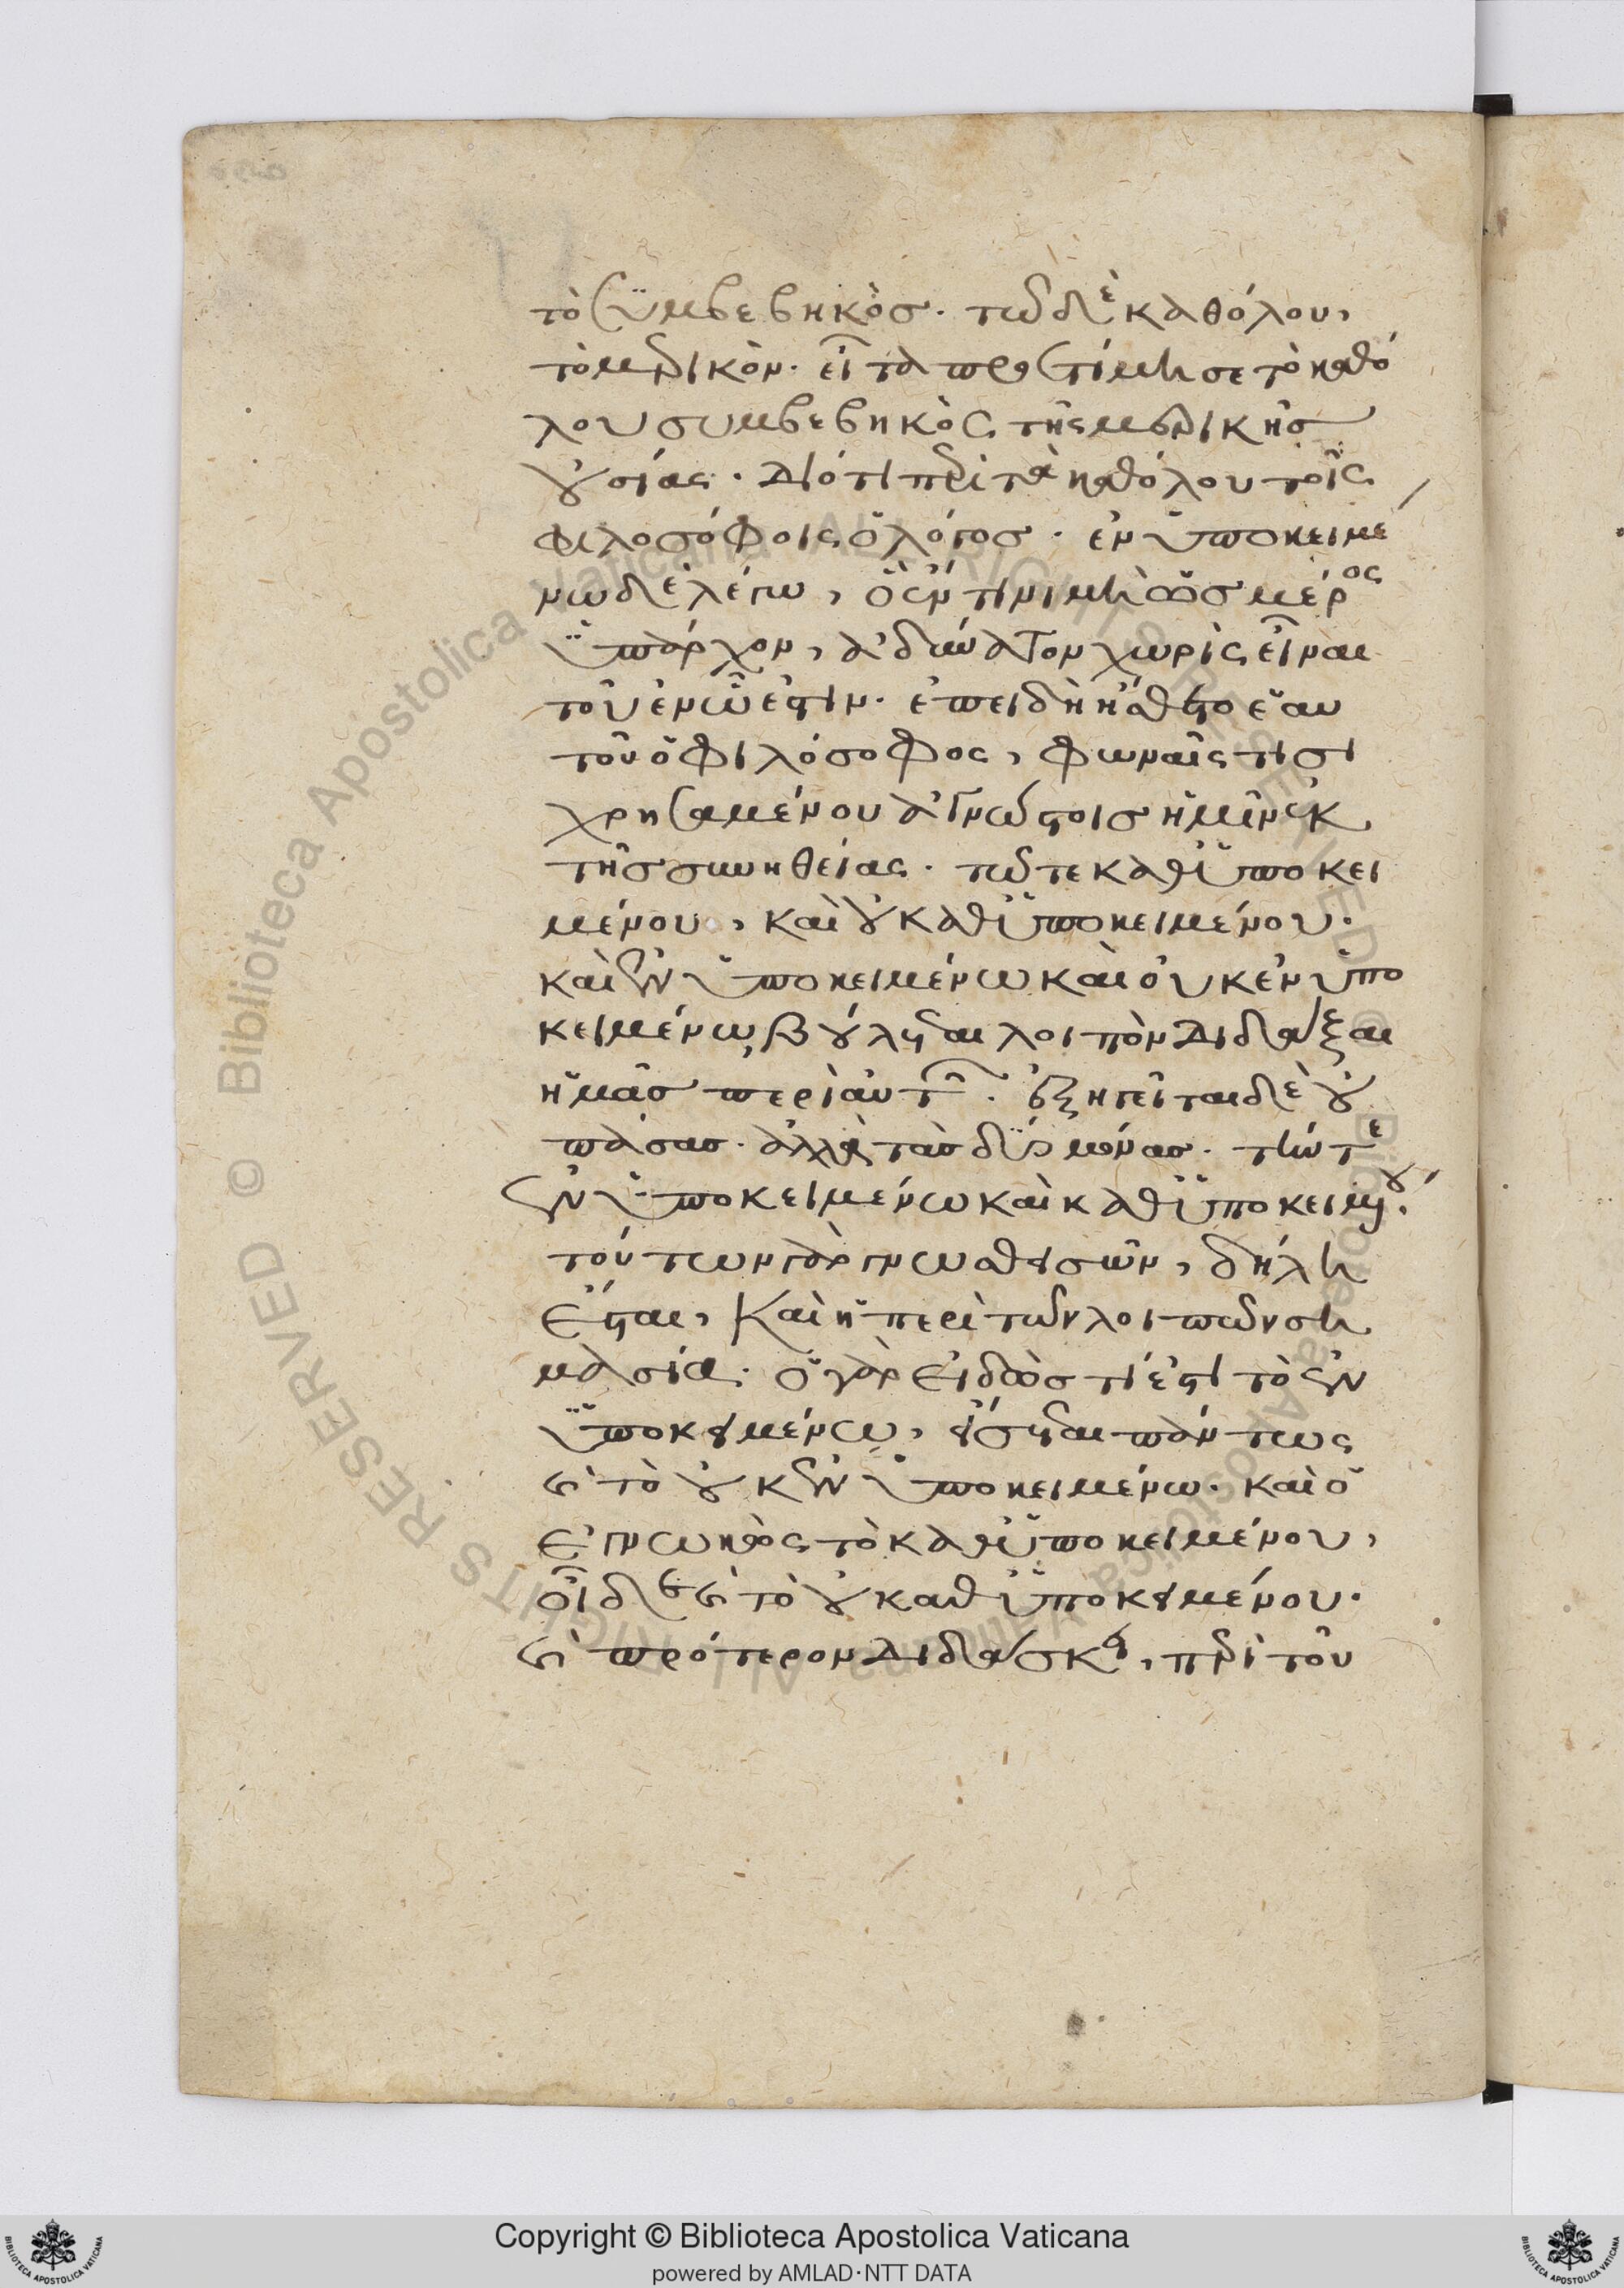 τὸ συμβεβηκὸσ· τῶ δὲ καθόλου,
τὸ μερικὸν· εἶτα προετίμησε τὸ καθό
λου συμβεβηκὸς τῆς μερικῆσ
οὐσίας· διότι περὶ τὰ καθόλου τοῖς
φιλοσόφοις ὁ λόγοσ· ἐν ὑποκειμέ
νω δὲ λέγω, ὃ ἔν τινι μὴ ὡσ μέρος
ὑπάρχον, ἀδύνατον χωρὶς εἶναι
τοῦ ἐν ὧ ἐστιν· ἐπειδὴ ἤσθετο ἑαυ
τοῦ ὁ φιλόσοφος, φωναῖς τισι
χρησαμένου ἀγνώστοισ ἡμῖν ἐκ
τῆσ συνηθείας· τῶ τε καθ' ὑποκει
μένου, καὶ οὐ καθ' ὑποκειμένου·
καὶ ἐν ὑποκειμένω καὶ οὐκ ἐν ὑπο
κειμένω, βούλεται λοιπὸν διδάξαι
ἡμᾶσ περὶ αὐτῶν· ἐξηγεῖται δὲ οὐ
πάσασ· ἀλλὰ τὰσ δύο μόνασ· τήν τε
ἐν ὑποκειμένω καὶ καθ' ὑποκειμένου·
τούτων γὰρ γνωσθεισῶν, δήλη
ἔσται, καὶ ἡ περὶ τῶν λοιπῶν ση
μασία· ὁ γὰρ εἰδὼσ τί ἐστι τὸ ἐν
ὑποκειμένω, εἴσεται πάντως
καὶ τὸ οὐκ ἐν ὑποκειμένω· καὶ ὁ
ἐγνωκὼς τὸ καθ' ὑποκειμένου,
οἶδε καὶ τὸ οὐ καθ' ὑποκειμένου·
καὶ πρότερον διδάσκει, περὶ τοῦ
Copyright © Biblioteca Apostolica Vaticana
powered by AMLAD·NTT DATA